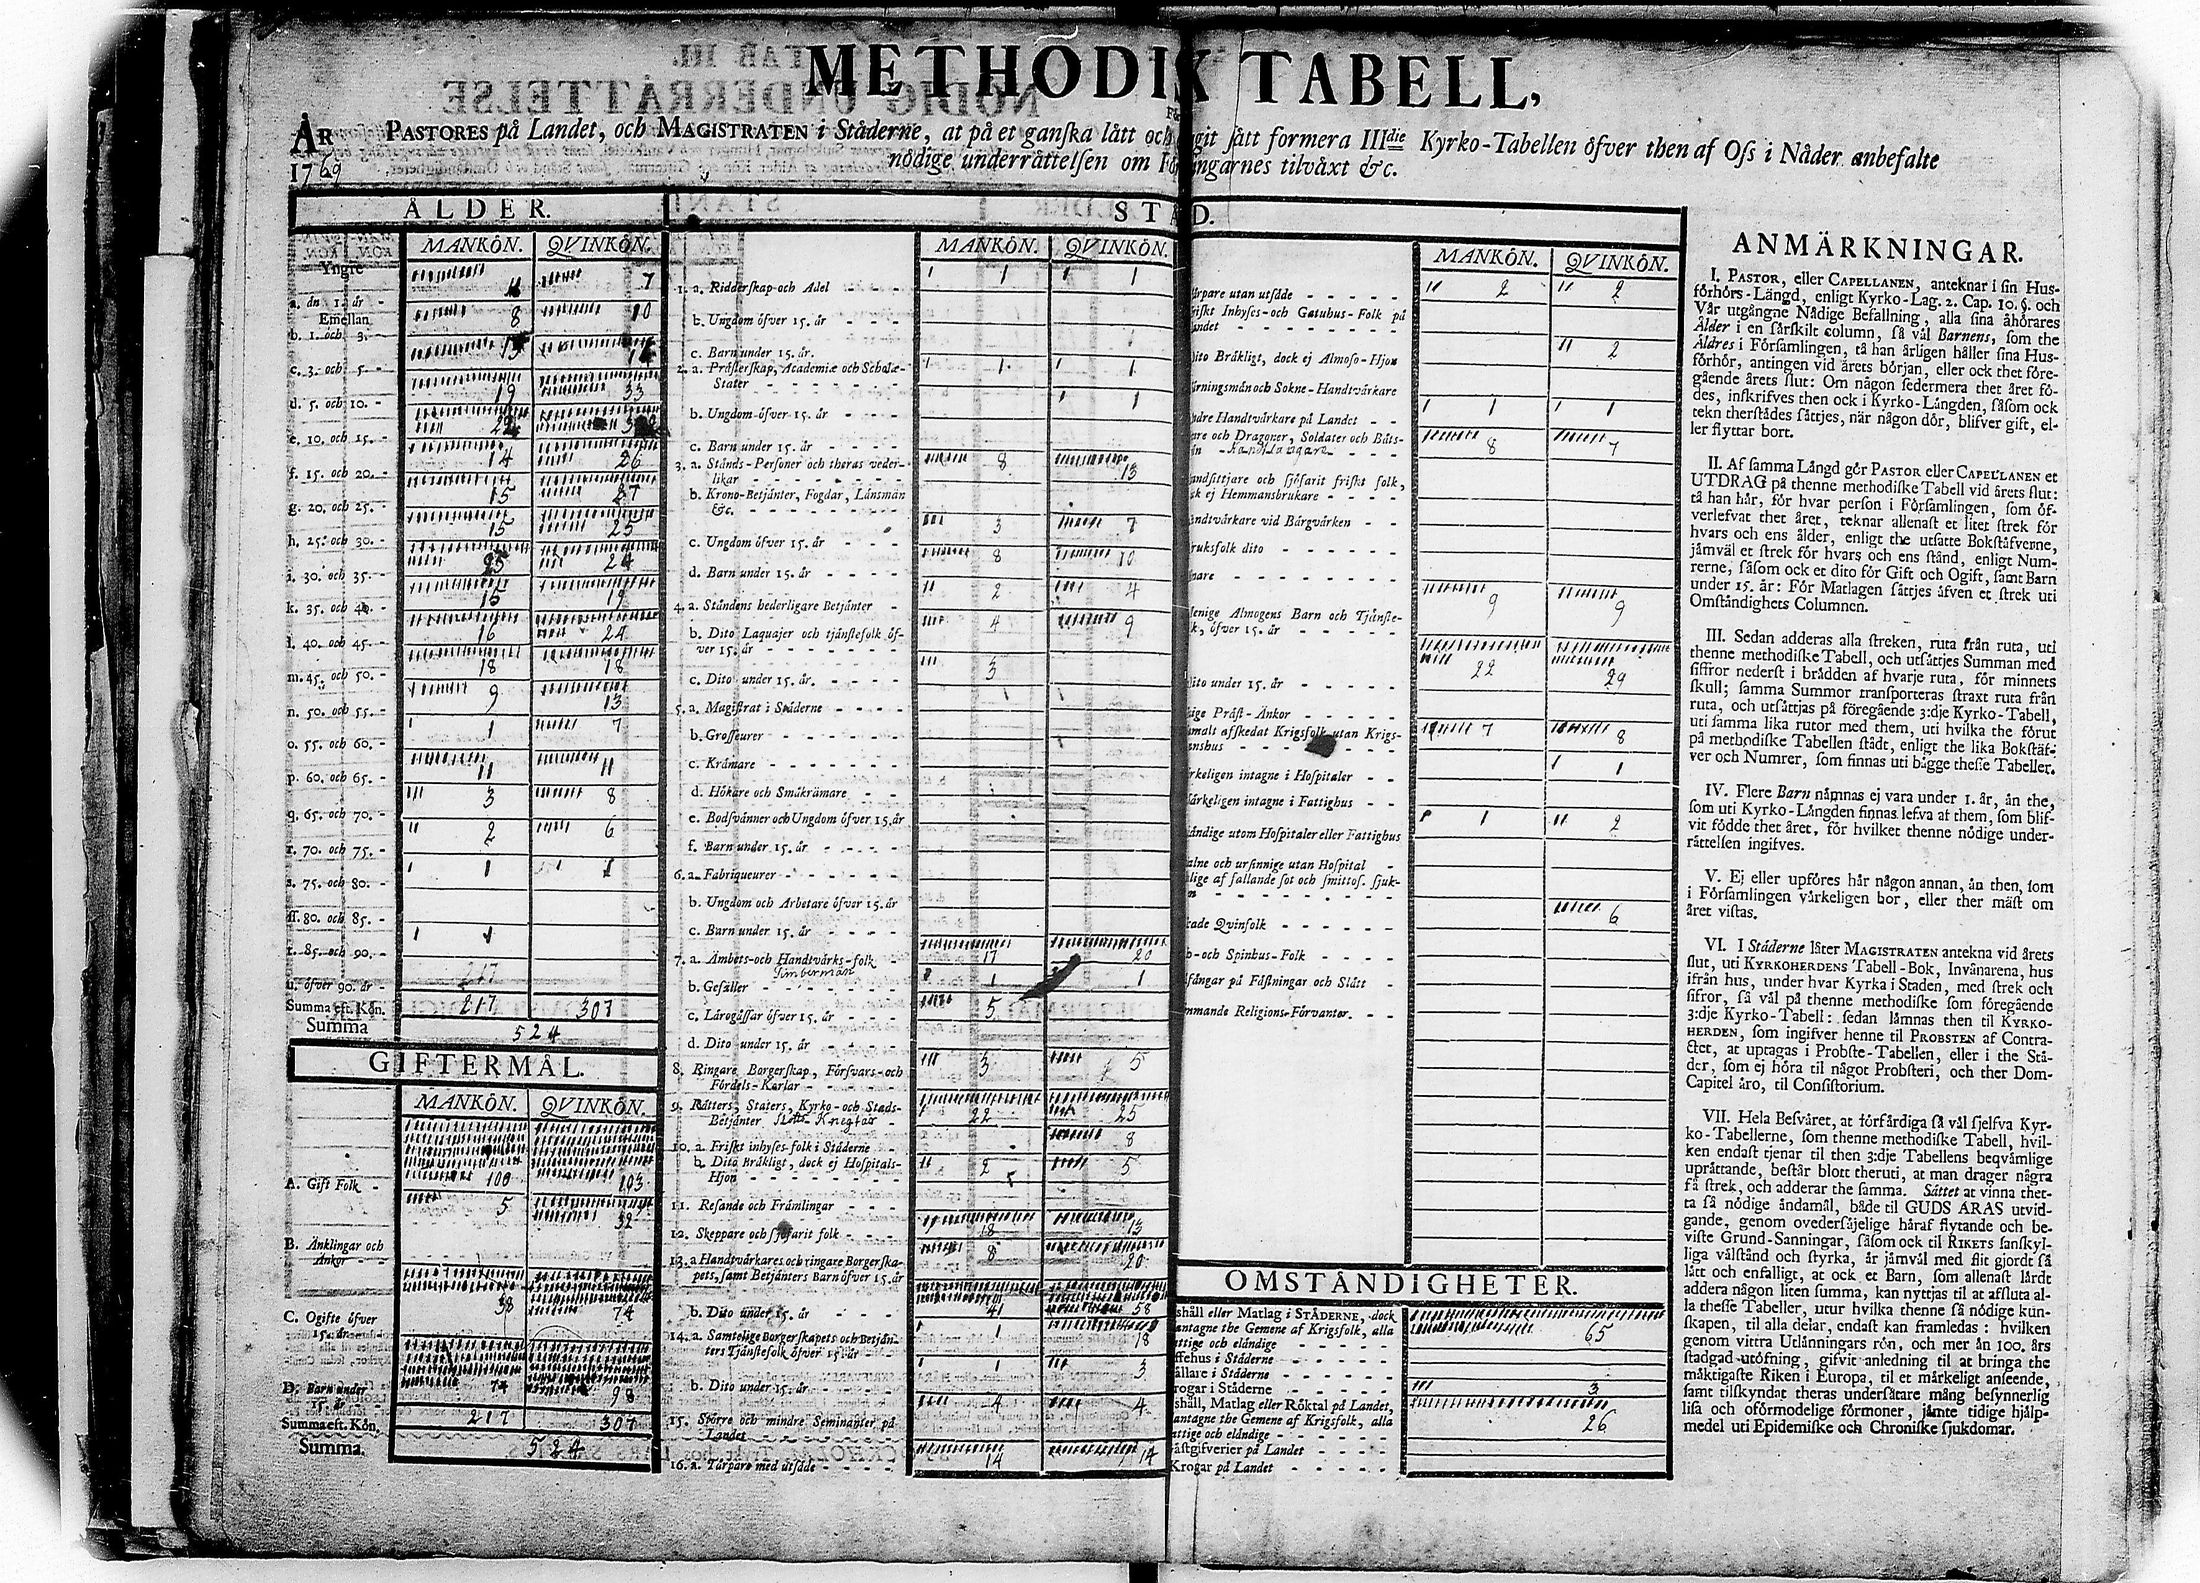 METHODISK TABELL,
ÅR PASTORES på Landet, och MAGISTRATEN i Ståderne, at på et ganska lått och sått formera IIIdie Kyrko-Tabellen öfver then af Oss i Nåder anbefalte
1769 nödige underråttelsen om tilvåxt &c.
ÅLDER.
MANKÖN. QVINKÖN.
Yngre
a. ån 1. år - 11 7
Emellan
b. 1. och 3. - 8 10
c. 3. och 5. - 13 14
d. 5. och 10. - 19 33
e. 10. och 15. - 22
f. 15. och 20. - 14 26
g. 20. och 25. - 15 27
h. 25. och 30. - 15 25
i. 30. och 35. - 25 24
k. 35. och 40. - 15 19
l. 40. och 45. - 16 24
m. 45. och 50. - 18 18
n. 50. och 55. - 9 13
o. 55. och 60. - 1 7
p. 60. och 65. - 11 11
q. 65. och 70. - 3 8
r. 70. och 75. - 2 6
s. 75. och 80. - 1 1
ff. 80. och 85. -
t. 85. och 90. - 1
u. öfver 90. år - 217
Summa eft. Kön. 217 307
Summa 524
GIFTERMÅL.
MANKÖN. QVINKÖN.
A. Gift Folk - 100 103
B. Änklingar och 5 32
Änkor - -
C. Ogifte öfver 38 74
15. år.
D. Barn under 74 98
15. år -
Summa eft. Kön. 217 307
Summa. 524
MANKÖN. QVINKÖN.
1. a. Ridderskap och Adel - - - 1 1
b. Ungdom öfver 15. år - - -
c. Barn under 15. år.
2. a. Pråsterskap, Academiæ och Scholæ- 1 1
Stater - - - - - -
b. Ungdom öfver 15. år - - - 1
c. Barn under 15. år - - - -
3. a. Stånds-Personer och theras veder- 8 13
likar - - - - - -
b. Krono-Betjånter, Fogdar, Lånsmån
&c. - - - - - - 3 7
c. Ungdom öfver 15. år - - - 8 10
d. Barn under 15. år - - - - 2 4
4. a. Ståndens hederligare Betjånter - 4 9
b. Dito Laquajer och tjånstefolk öf-
ver 15. år - - - - - 3
c. Dito under 15. år. - - - -
5. a. Magistrat i Ståderne - - - -
b. Grosseurer - - - - - -
c. Kråmare - - - - - -
d. Hökare och Småkråmare - - -
e. Bodsvånner och Ungdom öfver 15. år
f. Barn under 15. år - - - -
6. a. Fabriqueurer - - - - -
b. Ungdom och Arbetare öfver 15. år
c. Barn under 15. år - - - - 17 20
7. a. Åmbets- och Handtvårks-folk
Timberman 1 1
b. Gesåller - - - - - - 5
c. Lårogåssar öfver 15. år - - -
d. Dito under 15. år - - - - 3 5
8. Ringare Borgerskap, Försvars- och
Fördels-Karlar - - - - 22 25
9. Råtters, Staters, Kyrko- och Stads-
Betjånter - 8
10. a. Friskt inhyses-folk i Ståderne - 2 5
b. Dito Bråkligt, dock ej Hospitals-
Hjon - - - - - -
11. Resande och Fråmlingar - - - 18 13
12. Skeppare och sjöfarit folk - - - 8 20
13. a Handtvårkares och ringare Borgerska-
pets, samt Betjånters Barn öfver 15. år 41 58
b. Dito under 15. år - - - 1 18
14. a. Samtelige Borgerskapets och Betjån-
ters Tjånstefolk öfver 15 år - - 1 3
b. Dito under 15. år - - - - 4 4
15. Större och mindre Seminanter på
Landet - - - - - - 14 14
16. a. Torpare med utsåde - - - -
MANKÖN. QVINKÖN.
utan utsåde - - - - - 2 2
Inhyses- och Gatuhus-Folk på
- - - - - - 2
Bråkligt, dock ej Almoso-Hjon
och Sokne-Handtvårkare 1 1
Handtvårkare på Landet - - 8 7
och Dragoner, Soldater och Båts-
och sjöfarit friskt folk,
ej Hemmansbrukare - - -
vid Bårgvårken - -
dito - - - - - -
- - - - - - 9 9
Almogens Barn och Tjånste-
öfver 15. år - - - - - 22 29
under 15. år - - - - -
Pråst-Änkor - - - - - 7 8
afskedat Krigsfolk utan Krigs-
- - - - - - 1
intagne i Hospitaler - -
intagne i Fattighus - - 1 2
utom Hospitaler eller Fattighus
och ursinnige utan Hospital -
af fallande sot och smittos. sjuk-
- - - - - - 6
Qvinfolk - - - - -
och Spinhus-Folk - - - -
på Fåstningar och Slått -
Religions-Förvanter. - -
OMSTÅNDIGHETER.
eller Matlag i STÅDERNE, dock 65
the Gemene af Krigsfolk, alla
och elåndige - - - - -
i Ståderne - - - - -
i Ståderne - - - - - 3
i Ståderne - - - - -
Matlag eller Röktal på Landet, 26
the Gemene af Krigsfolk, alla
och elåndige - - - - -
på Landet - - - -
Krogar på Landet - - - - -
ANMÄRKNINGAR.
I. PASTOR, eller CAPELLANEN, anteknar i sin Hus-
förhörs-Långd, enligt Kyrko-Lag. 2. Cap. 10. §. och
Vår utgångne Nådige Befallning, alla sina åhörares
Ålder i en sårskilt column, så vål Barnens, som the
Äldres i Församlingen, tå han årligen håller sina Hus-
förhör, antingen vid årets början, eller ock thet före-
gående årets slut: Om någon sedermera thet året fö-
des, inskrifves then ock i Kyrko-Långden, såsom ock
tekn therstådes såttjes, når någon dör, blifver gift, el-
ler flyttar bort.
II. Af samma Långd gör PASTOR eller CAPELLANEN et
UTDRAG på thenne methodiske Tabell vid årets slut:
tå han hår, för hvar person i Församlingen, som öf-
verlefvat thet året, teknar allenast et litet strek för
hvars och ens ålder, enligt the utsatte Bokståfverne,
jåmvål et strek för hvars och ens stånd, enligt Num-
rerne, såsom ock et dito för Gift och Ogift, samt Barn
under 15. år: För Matlagen såttjes åfven et strek uti
Omståndighets Columnen.
III. Sedan adderas alla streken, ruta från ruta, uti
thenne methodiske Tabell, och utsåttjes Summan med
siffror nederst i brådden af hvarje ruta, för minnets
skull; samma Summor transporteras straxt ruta från
ruta, och utsåttjas på föregående 3:dje Kyrko-Tabell,
uti samma lika rutor med them, uti hvilka the förut
på methodiske Tabellen stådt, enligt the lika Bokståf-
ver och Numrer, som finnas uti bågge thesse Tabeller.
IV. Flere Barn nåmnas ej vara under 1. år, ån the,
som uti Kyrko-Långden finnas lefva at them, som blif-
vit födde thet året, för hvilket thenne nödige under-
råttelsen ingifves.
V. Ej eller upföres hår någon annan, ån then, som
i Församlingen vårkeligen bor, eller ther måst om
året vistas.
VI. I Ståderne låter MAGISTRATEN antekna vid årets
slut, uti KYRKOHERDENS Tabell-Bok, Invånarena, hus
ifrån hus, under hvar Kyrka i Staden, med strek och
sifror, så vål på thenne methodiske som föregående
3:dje Kyrko-Tabell: sedan låmnas then til KYRKO-
HERDEN, som ingifver henne til PROBSTEN af Contra-
ctet, at uptagas i Probste-Tabellen, eller i the Stå-
der, som ej höra til något Probsteri, och ther Dom-
Capitel åro, til Consistorium.
VII. Hela Besvåret, at förfårdiga så vål sjelfva Kyr-
ko-Tabellerne, som thenne methodiske Tabell, hvil-
ken endast tjenar til then 3:dje Tabellens beqvåmlige
upråttande, beståt blott theruti, at man drager några
få strek, och adderar the samma. Såttet at vinna thet-
ta så nödige åndamål, både til GUDS ÅRAS utvid-
gande, genom ovedersåjelige håraf flytande och be-
viste Grund-Sanningar, såsom ock til RIKETS sanskyl-
liga vålstånd och styrka, år jåmvål med flit gjordt så
lått och enfalligt, at ock et Barn, som allenast lårdt
addera någon liten summa, kan nyttjas til at afsluta al-
la thesse Tabeller, utur hvilka thenne så nödige kun-
skapen, til alla delar, endast kan framledas: hvilken
genom vittra Utlånningars rön, och mer ån 100. års
stadgad utöfning, gifvit anledning til at bringa the
måktigaste Riken i Europa, til et mårkeligt anseende,
samt tilskyndat theras undersåtare mång besynnerlig
lisa och oförmodelige förmoner, jåmte tidige hjålp-
medel uti Epidemiske och Chroniske sjukdomar.